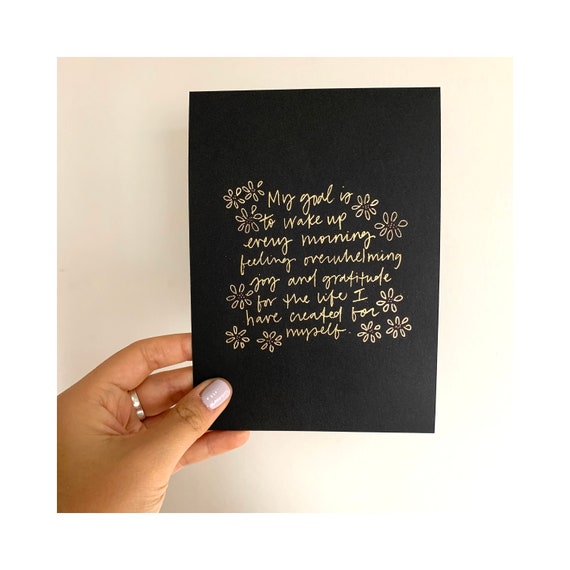 My goal is
to wake up
every morning
feeling overwhelming
joy and gratitude
for the life I
have created for
myself.